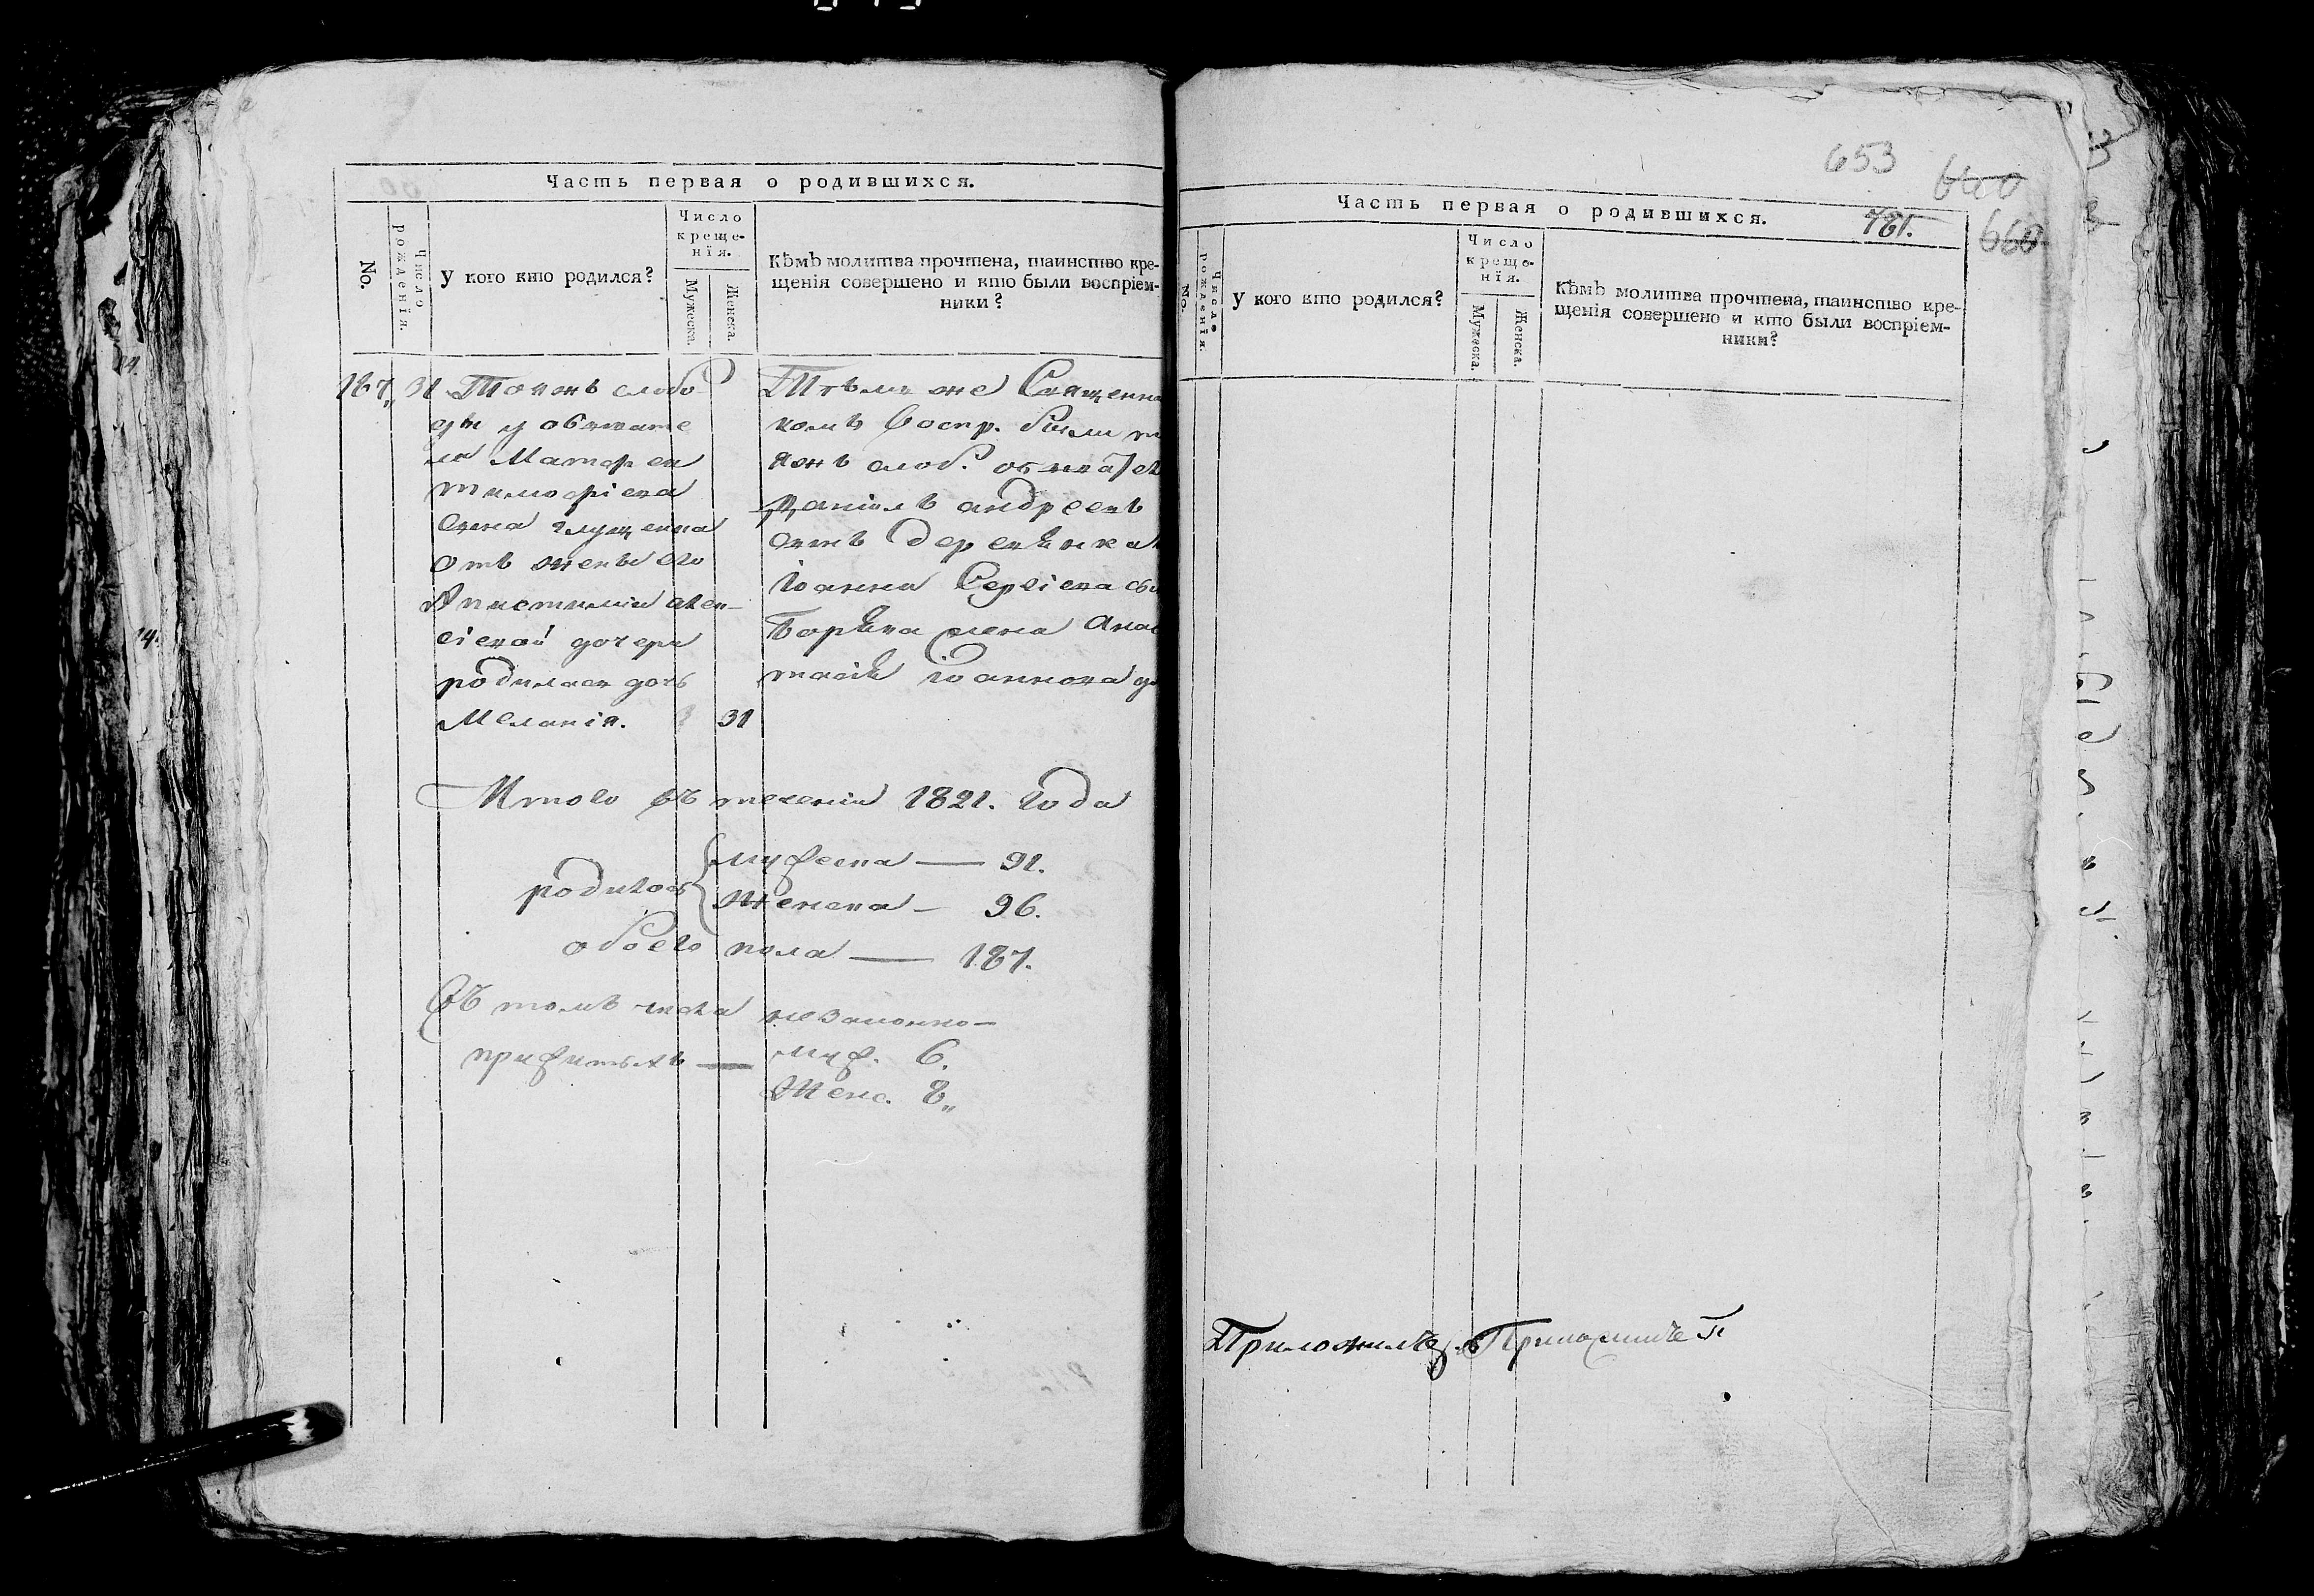 Часть первая о родившихся.
No.
Число рожденїя.
У кого кто родился?
Число
креще-
нїя.
Мужеска.
Женска.
Кѣмъ молитва прочтена, таинство кре-
щенія совершено и кто были воспріем-
ники?
187, 31 Тояжъ слобо
ды у обывате
ля Матфея
тимофіева
сына глущенка
отъ жены его
алек-
сіевой дочери
родилась дочь
Меланія. 31
Тѣмъ же Священни
комъ воспр. были то
яжъ слоб. обыватель
Даніилъ андреевъ
сынъ
Іоанна Сергіева сы
жена Анас
тасія Іоаннова до
Итого въ теченіи 1821. Года
родилось
мужеска — 91.
женска — 96.
обоего пола — 187.
Въ томъ числѣ незаконно-
прижитыхъ — муж. 6.
Женс. 8„
653
660
660
Часть первая о родившихся. 781.
No.
Число рожденїя.
У кого кто родился?
Число
креще-
нїя.
Мужеска.
Женска.
Кѣмъ молитва прочтена, таинство кре-
щенія совершено и кто были воспріем-
ники?
Приложилъ